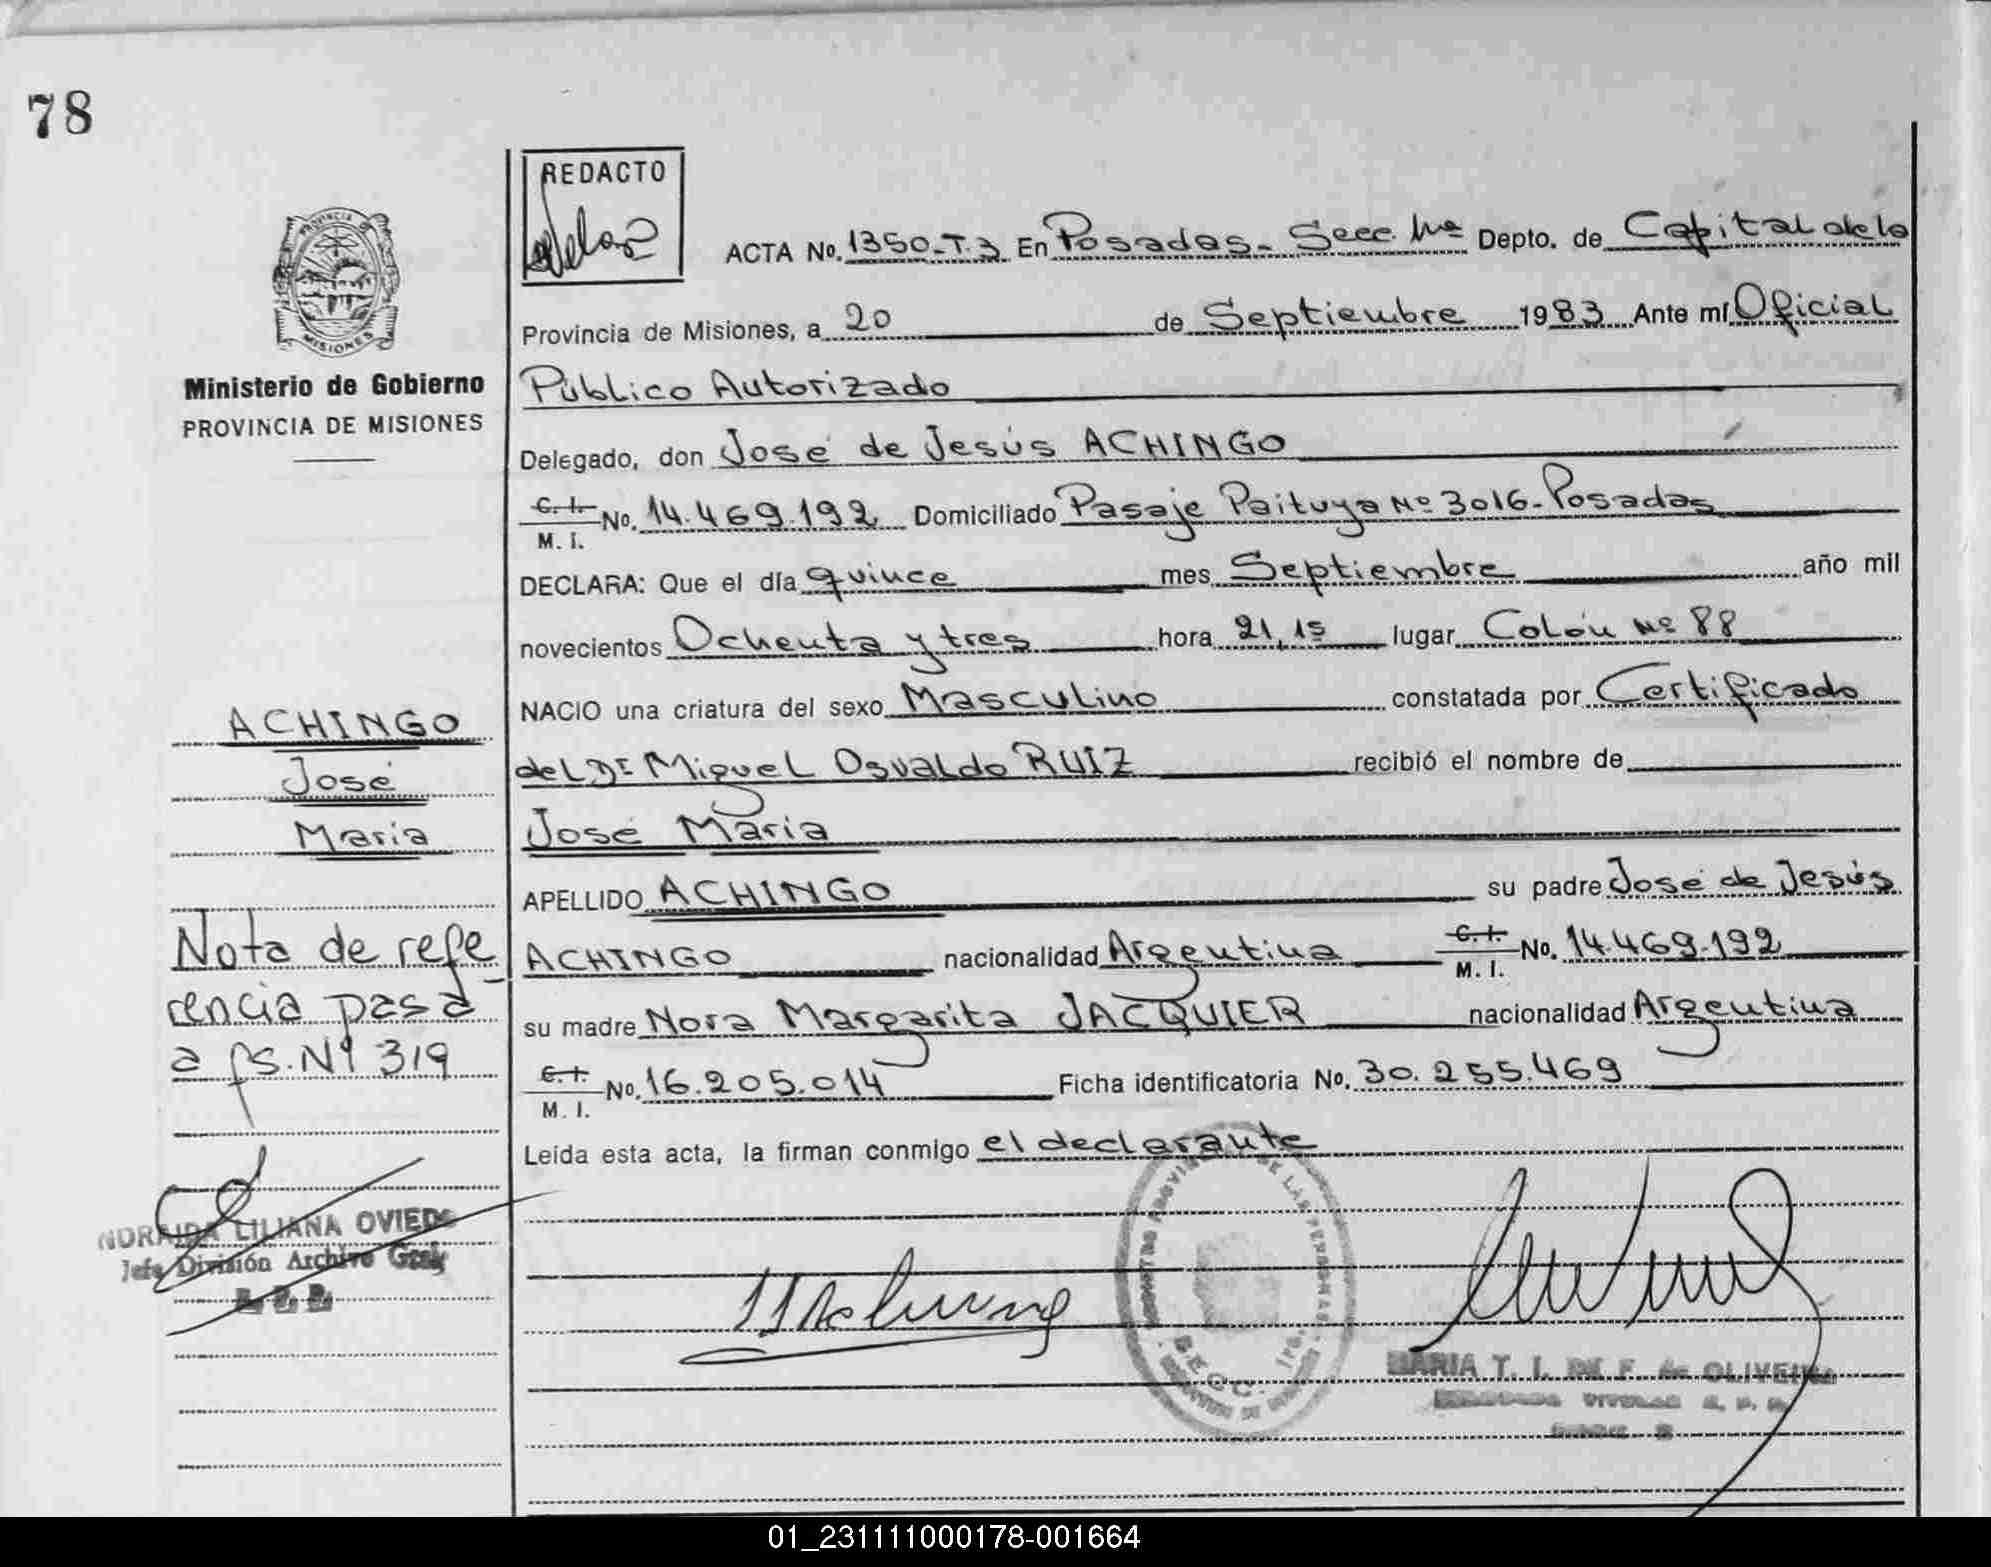 78
REDACTO
ACTA No. 1350-T.3 En Posadas- Secc. 1ra Depto. de Capital de la
Provincia de Misiones, a 20 de Septiembre 1983 Ante mí Oficial
Público Autorizado
Delegado, don José de Jesús ACHINGO
C. I. No. 14.469.192 Domiciliado Pasaje Paituya Nº 3016-Posadas
M. I.
DECLARA: Que el día quince mes Septiembre año mil
novecientos Ochenta y tres hora 21,15 lugar Colón Nº 88
NACIO una criatura del sexo Masculino constatada por Certificado
del Dr Miguel Osvaldo RUIZ recibió el nombre de
José María
APELLIDO ACHINGO su padre José de Jesús
ACHINGO nacionalidad Argentina C. I. No. 14.469.192
M. I.
su madre Nora Margarita JACQUIER nacionalidad Argentina
C. I. No. 16.205.014 Ficha identificatoria No. 30.255.469
M. I.
Leida esta acta, la firman conmigo el declarante
PROVINCIA DE
MISIONES
Ministerio de Gobierno
PROVINCIA DE MISIONES
ACHINGO
José
María
Nota de refe
rencia pasa
a fs. Nº 319
LILIANA OVIEDO
Jefe División Archivo Gral
DE LAS PERSONAS
SECC. 1ra.
MARIA T. I. DE F. de OLIVEIRA
01_231111000178-001664